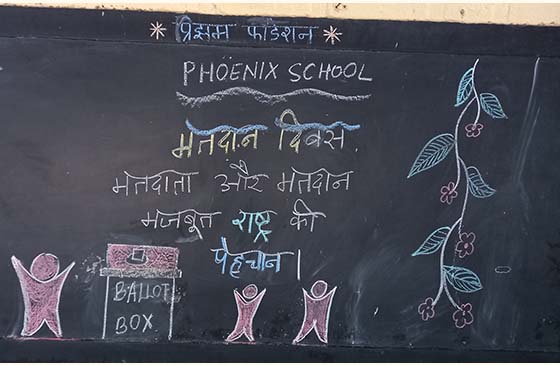 * प्रिझम फाउंडेशन *
PHOENIX SCHOOL
मतदान दिवस.
मतदाता और मतदान
मजबूत राष्ट्र की
पैहचान।
BALLOT
BOX